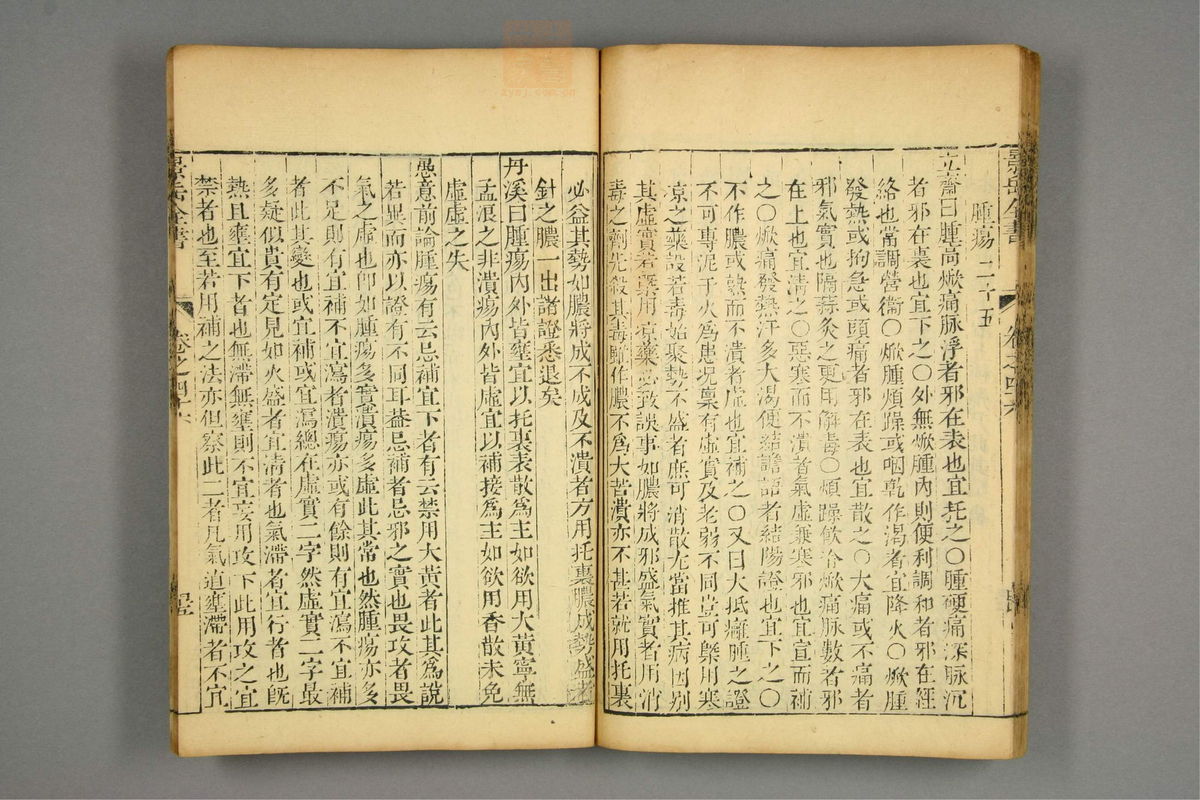 景岳全書
卷之四六
腫瘍 二十五
立齋曰腫高焮痛脉浮者邪在表也宜托之〇腫硬痛深脉沉
者邪在裏也宜下之〇外無焮腫內則便利調和者邪在經
絡也當調營衞〇焮腫煩躁或咽乾作渴者宜降火〇焮腫
發熱或拘急或頭痛者邪在表也宜散之〇大痛或不痛者
邪氣實也隔蒜灸之更用解毒〇煩躁飲冷焮痛脉數者邪
在上也宜清之〇惡寒而不潰者氣虛兼寒邪也宜宣而補
之〇焮痛發熱汗多大渴便結譫語者結陽證也宜下之〇
不作膿或熟而不潰者虛也宜補之〇又曰大抵癰腫之證
不可專泥于火爲患况禀有虛實及老弱不同豈可槩用寒
凉之藥設若毒始聚勢不盛者庶可消散尤當推其病因别
其虛實若槩用凉藥必致誤事如膿將成邪盛氣實者用消
毒之劑先殺其毒輒作膿不爲大苦潰亦不甚若就用托裏
必益其勢如膿將成不成及不潰者方用托裏膿成勢盛者
針之膿一出諸證悉退矣
丹溪曰腫瘍內外皆壅宜以托裏表散爲主如欲用大黄寧無
孟浪之非潰瘍內外皆虛宜以補接爲主如欲用香散未免
虛虛之失
愚意前論腫瘍有云忌補宜下者有云禁用大黄者此其爲說
若異而亦以證有不同耳葢忌補者忌邪之實也畏攻者畏
氣之虛也卽如腫瘍多實潰瘍多虛此其常也然腫瘍亦多
不足則有宜補不宜瀉者潰瘍亦或有餘則有宜瀉不宜補
者此其變也或宜補或宜瀉總在虛實二字然虛實二字最
多疑似貴有定見如火盛者宜清者也氣滯者宜行者也旣
熱且壅宜下者也無滯無壅則不宜妄用攻下此用攻之宜
禁者也至若用補之法亦但察此二者凡氣道壅滯者不宜
景岳全書
卷之四六